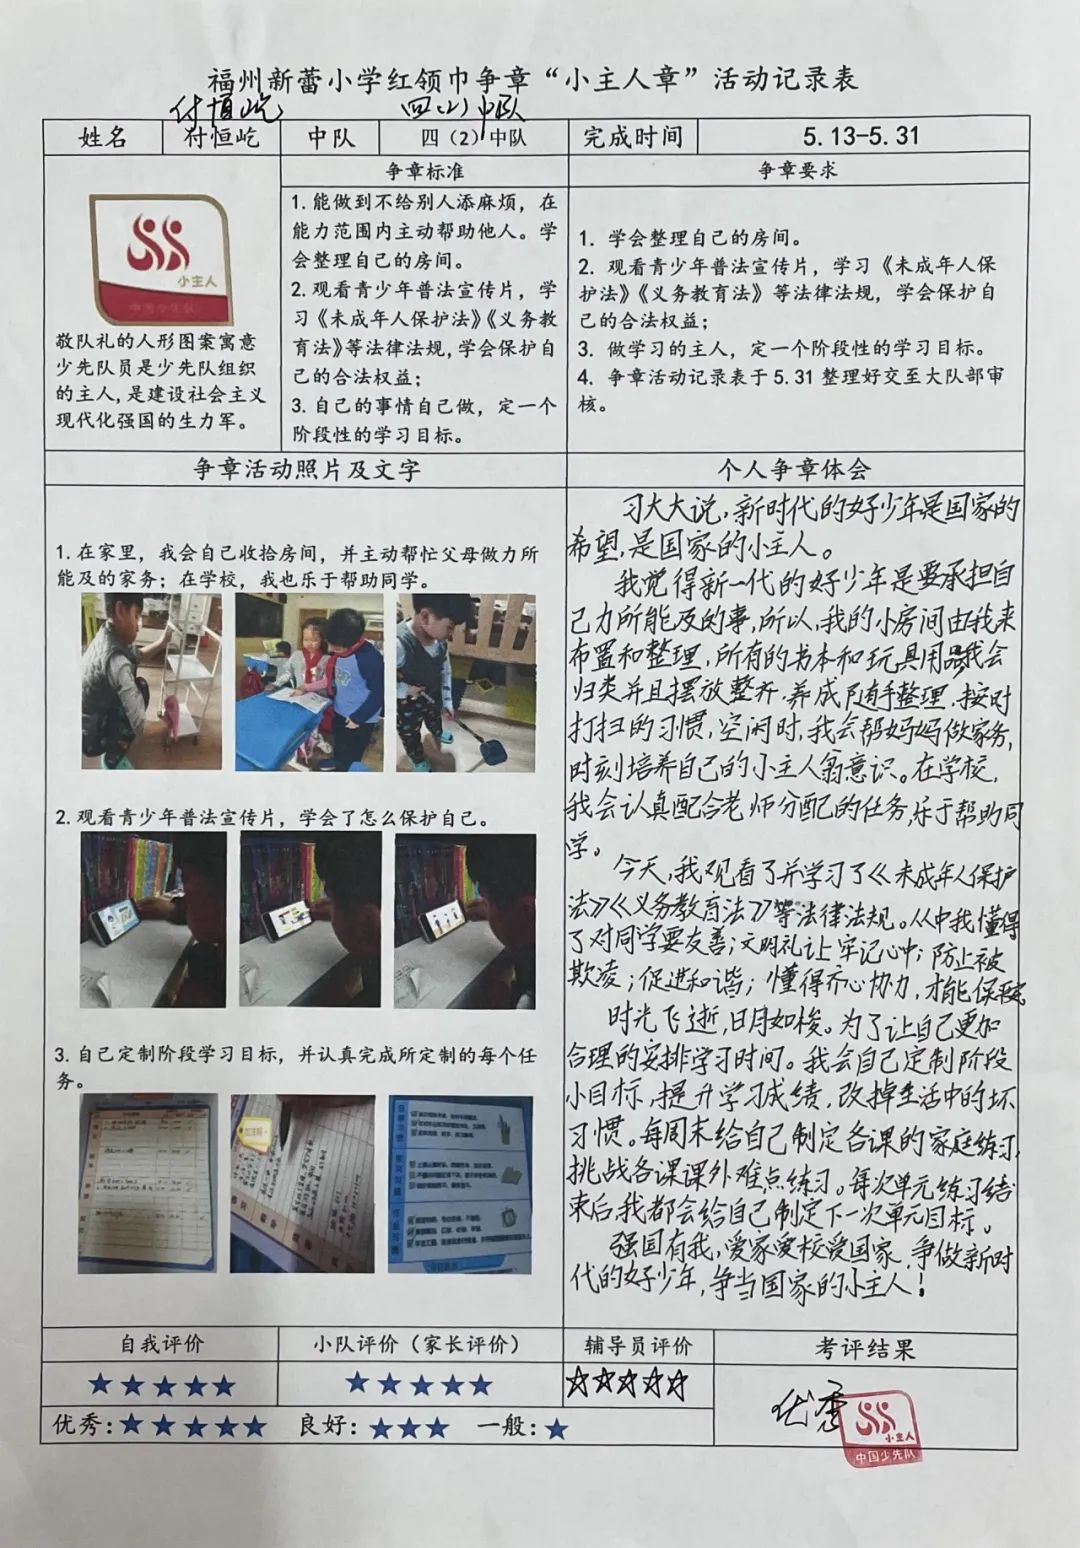 福州新蕾小学红领巾争章“小主人章”活动记录表
付恒屹 四(2)中队
姓名 付恒屹 中队 四（2）中队 完成时间 5.13-5.31
争章标准
争章要求
小主人
中国少先队
敬队礼的人形图案寓意
少先队员是少先队组织
的主人，是建设社会主义
现代化强国的生力军。
1.能做到不给别人添麻烦，在
能力范围内主动帮助他人。学
会整理自己的房间。
2.观看青少年普法宣传片，学
习《未成年人保护法》《义务教
育法》等法律法规，学会保护自
己的合法权益；
3.自己的事情自己做，定一个
阶段性的学习目标。
1. 学会整理自己的房间。
2. 观看青少年普法宣传片，学习《未成年人保
护法》《义务教育法》等法律法规，学会保护自
己的合法权益；
3. 做学习的主人，定一个阶段性的学习目标。
4. 争章活动记录表于 5.31 整理好交至大队部审
核。
争章活动照片及文字
1.在家里，我会自己收拾房间，并主动帮忙父母做力所
能及的家务；在学校，我也乐于帮助同学。
2.观看青少年普法宣传片，学会了怎么保护自己。
3.自己定制阶段学习目标，并认真完成所定制的每个任
务。
个人争章体会
习大大说，新时代的好少年是国家的
希望，是国家的小主人。
我觉得新一代的好少年是要承担自
己力所能及的事，所以，我的小房间由我来
布置和整理，所有的书本和玩具用品我会
归类并且摆放整齐，养成随手整理，按时
打扫的习惯，空闲时，我会帮妈妈做家务，
时刻培养自己的小主人翁意识。在学校，
我会认真配合老师分配的任务，乐于帮助同
学。
今天，我观看了并学习了《未成年人保护
法》《义务教育法》等法律法规。从中我懂得
了对同学要友善；文明礼让牢记心中；防止被
欺凌；促进和谐；懂得齐心协力，才能保平安
时光飞逝，日月如梭。为了让自己更加
合理的安排学习时间。我会自己定制阶段
小目标，提升学习成绩，改掉生活中的坏
习惯。每周末给自己制定各课的家庭练习，
挑战各课课外难点练习。每次单元练习结
束后，我都会给自己制定下一次单元目标。
强国有我，爱家爱校爱国家，争做新时
代的好少年，争当国家的小主人！
自我评价 小队评价（家长评价） 辅导员评价 考评结果
★★★★★ ★★★★★ ☆☆☆☆☆
优秀
优秀：★★★★★ 良好：★★★ 一般：★
小主人
中国少先队